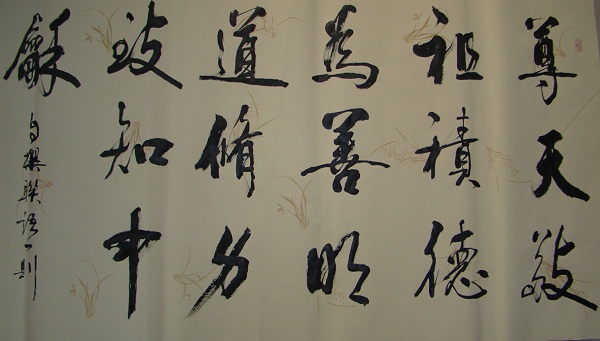 尊天敬
祖積德
為善明
道脩身
致知中
龢
自撰聯語一則